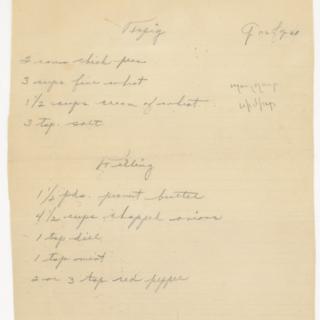 Topig
2 cans chick peas
3 cups fine whet
1 1/2 cups cream of whet
3 tsp. salt
Filling
1 1/2 pks. peanut butter
4 1/2 cups chopped onions
1 tsp dill
1 tsp mint
2 or 3 tsp red pepper